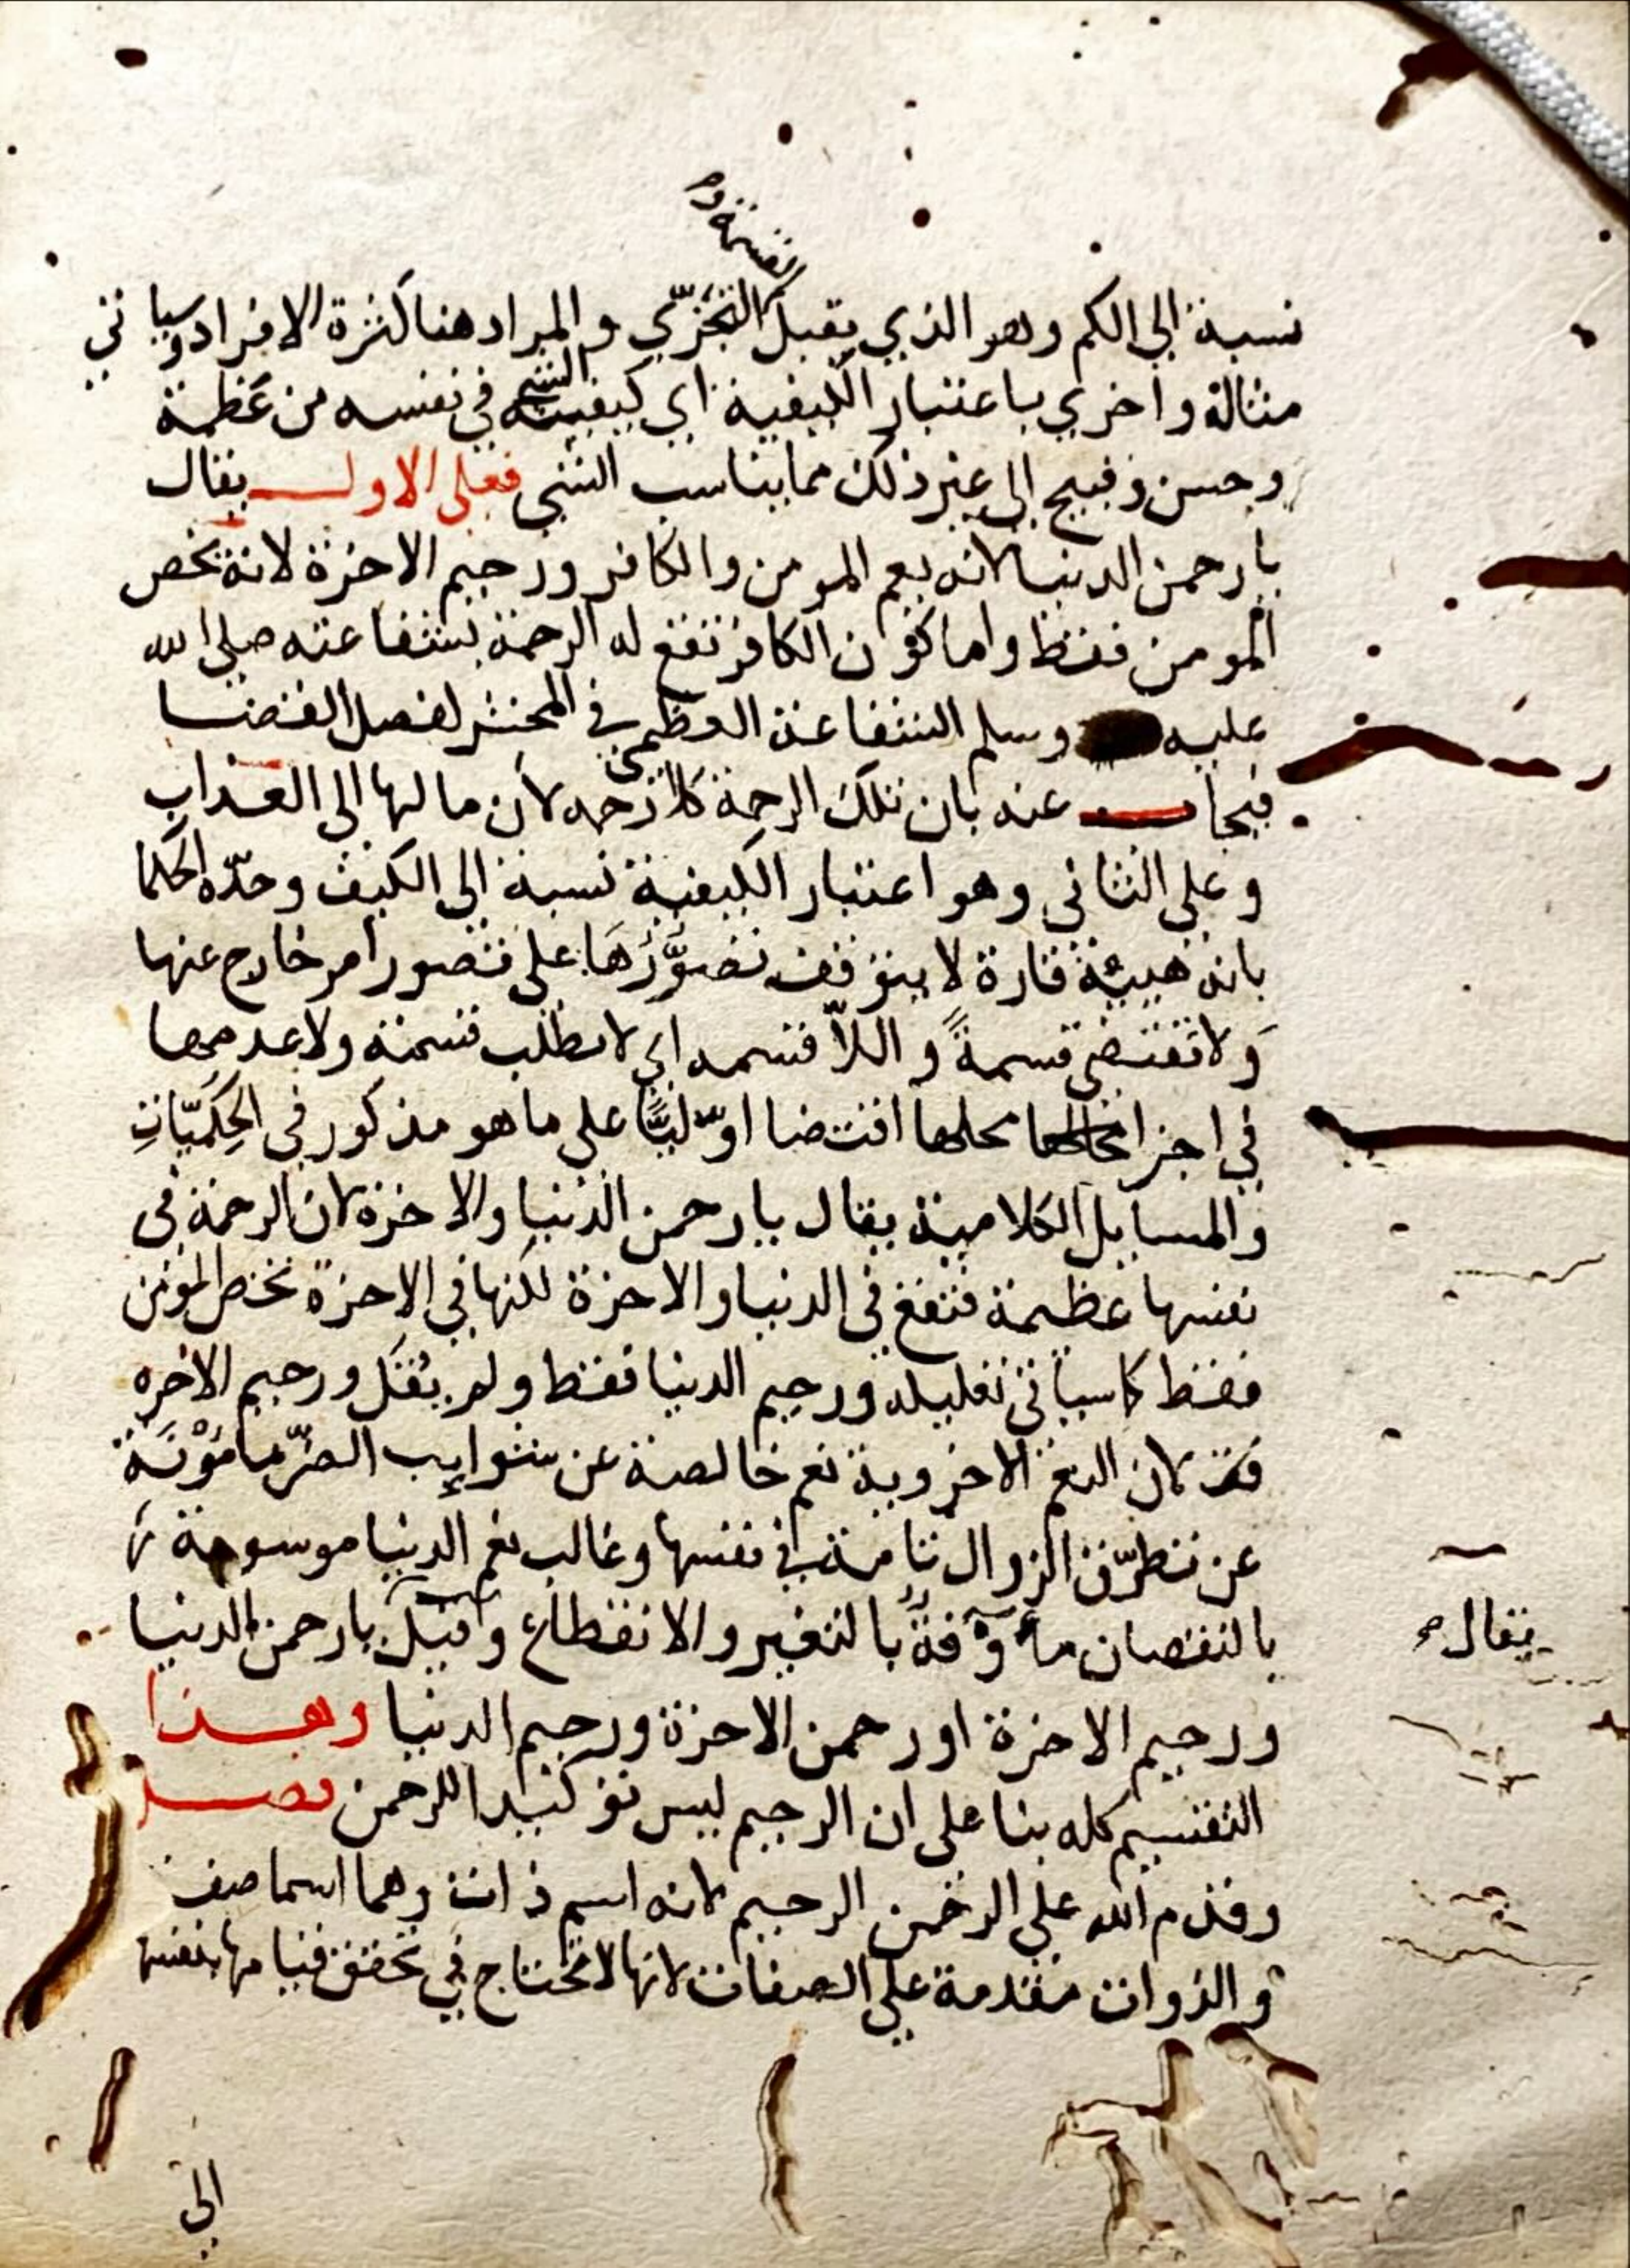 القسمة و
نسبة الى الكم وهو الذي يقبل التجزّي والمراد هنا كثرة الافراد وسياتي
مثاله واخري باعتبار الكيفية اي كيفية الشي في نفسه من عظمة
وحسن وقبيح الى غير ذلك مما يناسب الشي فعلى الاول يقال
يا رحمن الدنيا لانه يعم المومن والكافر ورحيم الاخرة لانه يخص
المومن فقط واما كون الكافر تقع له الرحمة بشفاعته صلى الله
عليه وسلم الشفاعة العظمى في المحشر لفصل القضا
فيجاب عنه بان تلك الرحمة كلا رحمه لأن مالها الى العذاب
وعلى الثاني وهو اعتبار الكيفية نسبة الى الكيف وحدّه الحكما
بانه هيئة قارة لا يتوقف تصوُّرُهَا على تصور أمر خارج عنها
وَلا تقتضي قسمةً و اللاّ قسمه اي لا تطلب قسمته ولا عدمها
في اجزا محلها اقتضا اوّليًّا على ما هو مذكور في الحِكَمِيّاتِ
والمسايل الكلامية يقال يا رحمن الدنيا والاخرة لان الرحمة في
نفسها عظيمة فتقع في الدنيا والاخرة لكنها في الاخرة تخص المؤمن
فقط كاسياتي تعليله ورحيم الدنيا فقط ولم يُقَل ورحيم الاخره
لان النعم الاخروية نعم خالصة عن شوايب الضرّ مامؤنَة
عن تطرّق الزوال تامة في نفسها وغالب نعم الدنيا موسومة
بالنقصان مأوفةٌ بالتغير والانقطاع و قيل يا رحمن الدنيا
يقال
ورحيم الاخرة اورحمن الاخرة ورحيم الدنيا وهذا
التقسيم كله بنا على ان الرحيم ليس توكيدا للرحمن فصل
وقدم الله على الرحمن الرحيم لانه اسم ذات وهما اسما صفة
والذوات مقدمة على الصفات لانها لا تحتاج في تحقق قيامها بنفسها
الى